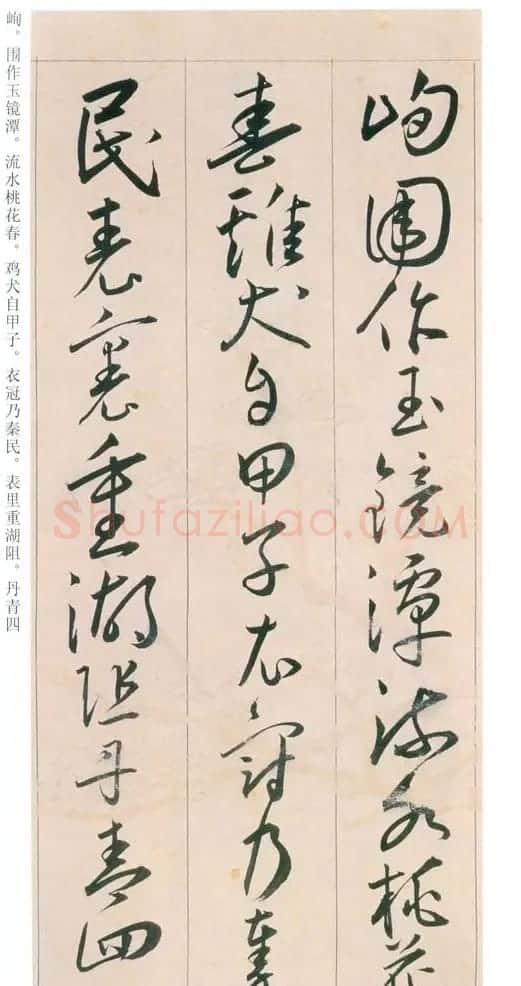 峋围作玉镜潭流水桃花
春雞犬自甲子衣冠乃秦
民表裏重湖阻丹青四
峋。围作玉镜潭。流水桃花春。鸡犬自甲子。衣冠乃秦民。表里重湖阻。丹青四
Shufaziliao.com